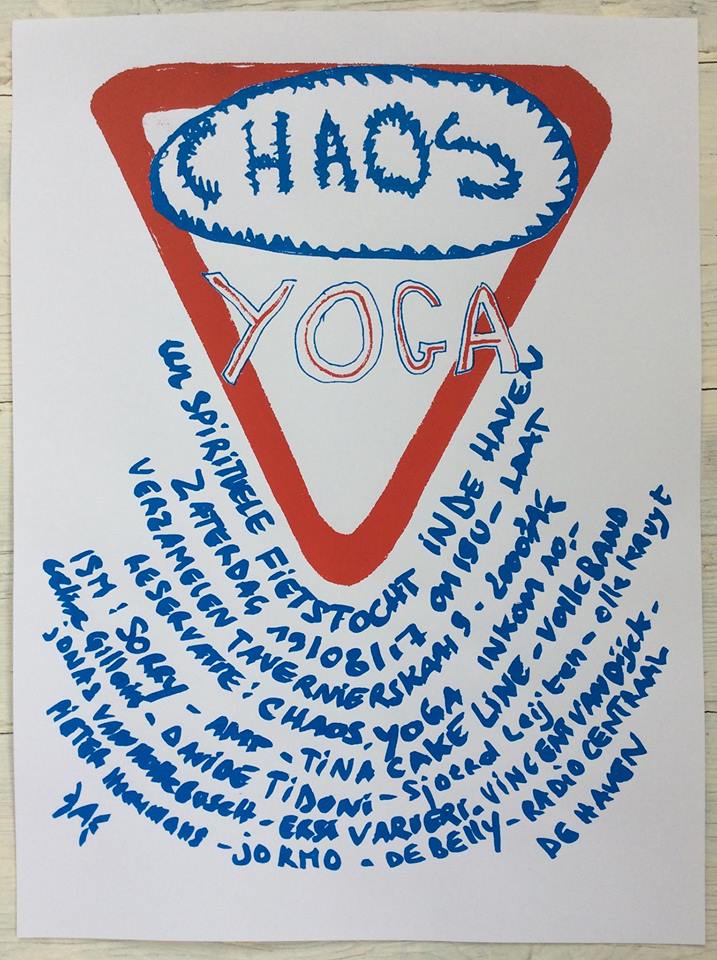 CHAOS
YOGA
een SPIRITUELE FIETSTOCHT IN DE HAVEN
ZATERDAG 19/08/17 OM 15U - LAAT
VERZAMELEN TAVERNIERSKAAI 9 - 2000
RESERVATIE: CHAOS YOGA INKOM 10,-
ISM: SORRY - AMP - TINA CAKE LINE - VOLLE BAND
DAVIDE TIDONI - Sjoerd Leijten - Olle Kruyt
JONAS - VINCENT VAN DIJCK -
PIETER - JORMO - DE BELLY - RADIO CENTRAAL
DE HAVEN